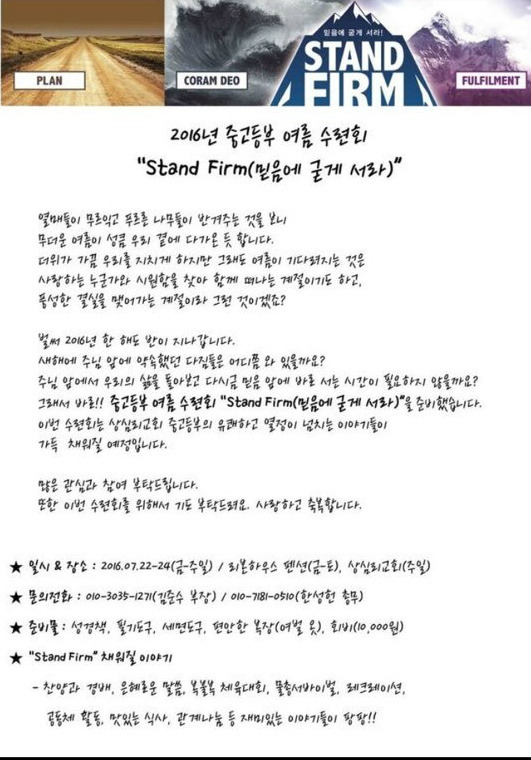 믿음에 굳게 서라!
STAND
FIRM
PLAN
CORAM DEO
FULFILMENT
2016년 중고등부 여름 수련회
"Stand Firm(믿음에 굳게 서라)"
열매들이 무르익고 푸르른 나무들이 반겨주는 것을 보니
무더운 여름이 성큼 우리 곁에 다가온 듯 합니다.
더위가 가끔 우리를 지치게 하지만 그래도 여름이 기다려지는 것은
사랑하는 누군가와 시원함을 찾아 함께 떠나는 계절이기도 하고,
풍성한 결실을 맺어가는 계절이라 그런 것이겠죠?
벌써 2016년 한 해도 반이 지나갑니다.
새해에 주님 앞에 약속했던 다짐들은 어디쯤 와 있을까요?
주님 앞에서 우리의 삶을 돌아보고 다시금 믿음 앞에 바로 서는 시간이 필요하지 않을까요?
그래서 바로!! 중고등부 여름 수련회 "Stand Firm(믿음에 굳게 서라)"을 준비했습니다.
이번 수련회는 상심리교회 중고등부의 유쾌하고 열정이 넘치는 이야기들이
가득 채워질 예정입니다.
많은 관심과 참여 부탁드립니다.
또한 이번 수련회를 위해서 기도 부탁드려요. 사랑하고 축복합니다.
★ 일시 & 장소 : 2016.07.22-24(금-주일) / 리본하우스 펜션(금-토), 상심리교회(주일)
★ 문의전화 : 010-3035-1271(김준수 부장) / 010-7181-0510(한성헌 총무)
★ 준비물 : 성경책, 필기도구, 세면도구, 편안한 복장(여벌 옷), 회비(10,000원)
★ "Stand Firm" 채워질 이야기
- 찬양과 경배, 은혜로운 말씀, 복불복 체육대회, 물총서바이벌, 레크레이션,
공동체 활동, 맛있는 식사, 관계나눔 등 재미있는 이야기들이 팡팡!!